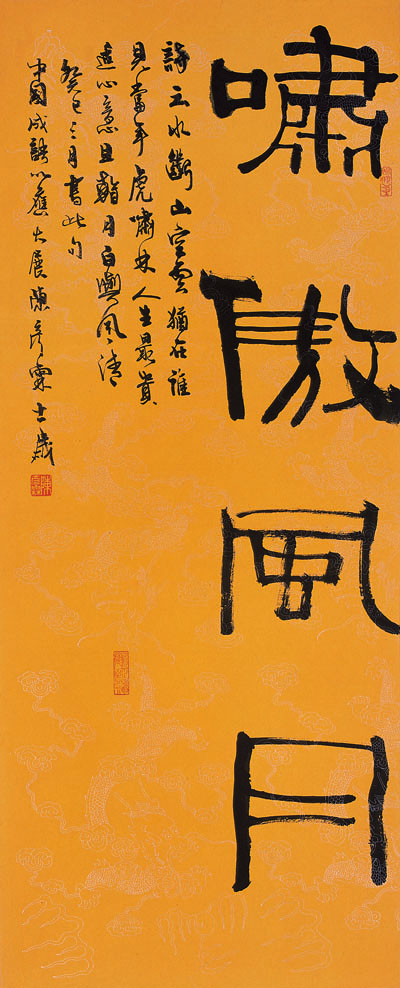 嘯傲風月
詩云水斷山空雲猶在誰
見當年虎嘯林人生最貴
遠心意且翰月白與風清
癸巳三月書此句
中國成語以應大展陳彥霖十一歲